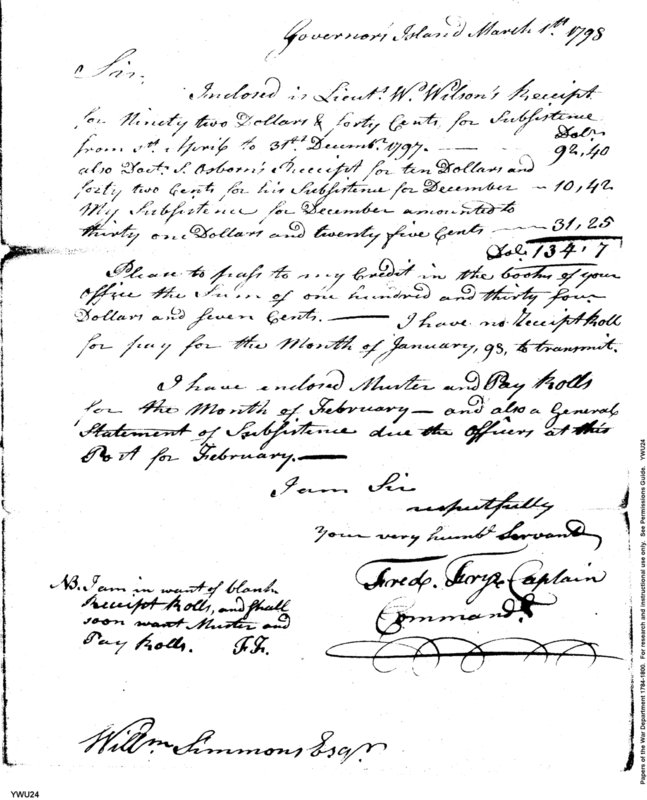 Governor's Island March 1.th 1798
Sir.
Inclosed is Lieut.s W.m Wilson's Receipt
for Ninety two Dollars & forty Cents for Subsistence
from 1st April to 31st Decemb.r 1797. — Dol.rs 92,40
also Doct.r S. Osborn's Receipt for ten Dollars and
forty two Cents for his Subsistence for December — 10,42
My Subsistence for December amounted to
thirty one Dollars and twenty five Cents — 31,25
Dol.s 134.7
Please to pass to my Credit in the books of your
Office the Sum of one hundred and thirty four
Dollars and seven Cents. — I have no Receipt Roll
for pay for the Month of January, 98, to transmit.
I have enclosed Muster and Pay Rolls
for the Month of February — and also a General
Statement of Subsistence due the Officers at this
Post for February. —
I am Sir
respectfully
Your very humb.l Servant
Fred.k Frye Captain
Command.t
NB. I am in want of blank
Receipt Rolls, and shall
soon want Muster and
Pay Rolls. F.F.
Will.m Simmons Esq.r
YWU24
Papers of the War Department 1784-1800. For research and instructional use only. See Permissions Guide. YWU24